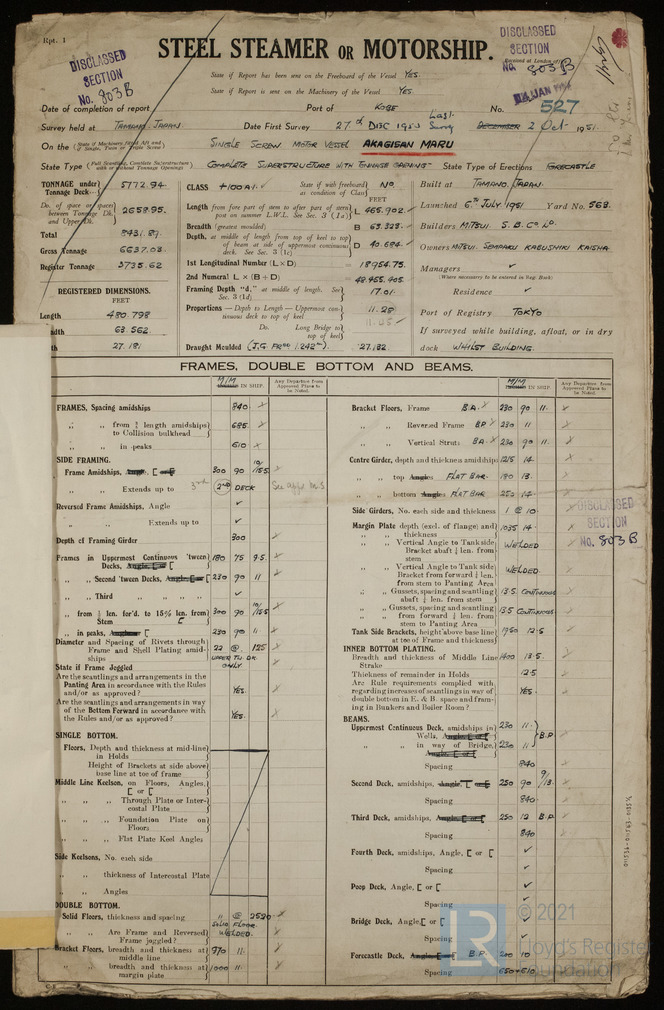 Rpt. 1
DISCLASSED
SECTION
No. 803B
STEEL STEAMER OR MOTORSHIP.
DISCLASSED
SECTION
No. 803B
Received at London Office
State if Report has been sent on the Freeboard of the Vessel YES.
State if Report is sent on the Machinery of the Vessel YES.
Date of completion of report
Port of KOBE
No. 527
Survey held at TAMANO, JAPAN
Date First Survey 27th DEC 1950
Last Survey 2 Oct 1951.
On the (State if Machinery fitted Aft and if Single, Twin or Triple Screw)
SINGLE SCREW MOTOR VESSEL AKAGISAN MARU
State Type (Full Scantling, Complete Superstructure with or without Tonnage Openings)
COMPLETE SUPERSTRUCTURE WITH TONNAGE OPENING
State Type of Erections FORECASTLE
TONNAGE under Tonnage Deck 5772.94
Do. of space or spaces between Tonnage Dk. and Upper Dk. 2658.95.
Total 8431.89.
Gross Tonnage 6637.03
Register Tonnage 3735.62
REGISTERED DIMENSIONS.
FEET
Length 480.798
63.562
27.181
CLASS +100A1.
State if with freeboard as condition of Class No.
FEET
Length from fore part of stem to after part of stern post on summer L.W.L. See Sec. 3 (1a) L 465.902.
Breadth (greatest moulded) B 63.325
Depth, at middle of length from top of keel to top of beam at side of uppermost continuous deck. See Sec. 3 (1c) D 40.684
1st Longitudinal Number (L x D) 18954.75.
2nd Numeral L x (B + D) 48,455.905
Framing Depth "d," at middle of length. See Sec. 3 (1d) 17.01
Proportions — Depth to Length — Uppermost continuous deck to top of keel 11.25
Do. Long Bridge to top of keel
Draught Moulded 27.182
Built at TAMANO, JAPAN.
Launched 6TH JULY, 1951 Yard No. 568.
Builders MITSUI S. B. Co. LD.
Owners MITSUI SEMPAKU KABUSHIKI KAISHA
Managers ✓
(Where necessary to be entered in Reg. Book)
Residence ✓
Port of Registry TOKYO
If surveyed while building, afloat, or in dry dock WHILST BUILDING.
FRAMES, DOUBLE BOTTOM AND BEAMS.
M/M
IN SHIP.
Any Departure from Approved Plans to be Noted.
FRAMES, Spacing amidships 840
" " from 3/5 length amidships to Collision bulkhead 685
" " in peaks 610
SIDE FRAMING.
Frame Amidships, 300 90 10/15.5
" " Extends up to 2ND DECK
Reversed Frame Amidships, Angle ✓
" " Extends up to ✓
Depth of Framing Girder 300
Frames in Uppermost Continuous 'tween Decks, 180 75 9.5
" " Second 'tween Decks, 230 90 11
" " Third " " ✓
" " from 1/4 len. for'd. to 15% len. from Stem 300 90 10/15.5
" " in peaks, 230 90 11
Diameter and Spacing of Rivets through Frame and Shell Plating amidships 22 @ 125
State if Frame Joggled UPPER TW. DK ONLY
Are the scantlings and arrangements in the Panting Area in accordance with the Rules and/or as approved? YES.
Are the scantlings and arrangements in way of the Bottom Forward in accordance with the Rules and/or as approved? YES.
SINGLE BOTTOM.
Floors, Depth and thickness at mid-line in Holds
Height of Brackets at side above base line at toe of frame
Middle Line Keelson, on Floors, Angles, [ or [
" " Through Plate or Intercostal Plate
" " Foundation Plate on Floors
" " Flat Plate Keel Angles
Side Keelsons, No. each side
" " thickness of Intercostal Plate
" " Angles
DOUBLE BOTTOM.
Solid Floors, thickness and spacing 11 @ 2520
" " Are Frame and Reversed Frame joggled? SOLID FLOOR WELDED.
Bracket Floors, breadth and thickness at middle line 970 11.
" " breadth and thickness at margin plate 1000 11
M/M
IN SHIP.
Any Departure from Approved Plans to be Noted.
Bracket Floors, Frame B.A. 230 90 11.
" " Reversed Frame B.P. 230 11
" " Vertical Struts B.A. 230 90 11.
Centre Girder, depth and thickness amidships 1215 14.
" " top Angles FLAT BAR. 180 13.
" " bottom Angles FLAT BAR 250 14
Side Girders, No. each side and thickness 1 @ 10
Margin Plate depth (excl. of flange) and thickness 1035 14.
" " Vertical Angle to Tank side Bracket abaft 1/4 len. from stem WELDED
" " Vertical Angle to Tank side Bracket from forward 1/4 len. from stem to Panting Area WELDED.
" " Gussets, spacing and scantling abaft 1/4 len. from stem 13.5 CONTINUOUS
" " Gussets, spacing and scantling from forward 1/4 len. from stem to Panting Area 13.5 CONTINUOUS
Tank Side Brackets, height above base line at toe of Frame and thickness 1950 12.5
INNER BOTTOM PLATING.
Breadth and thickness of Middle Line Strake 1400 13.5.
Thickness of remainder in Holds 12.5
Are Rule requirements complied with regarding increases of scantlings in way of double bottom in E. & B. space and framing in Bunkers and Boiler Room? YES.
BEAMS.
Uppermost Continuous Deck, amidships in Wells, 230 11
" " in way of Bridge, 230 11 B.P
Spacing 840
Second Deck, amidships, 250 90 9/13.
Spacing 840.
Third Deck, amidships, 250 12 B.P.
Spacing 840
Fourth Deck, amidships, Angle, [ or [ ✓
Spacing ✓
Poop Deck, Angle, [ or [ ✓
Spacing ✓
Bridge Deck, Angle, [ or [ ✓
Spacing ✓
Forecastle Deck, B.P. 200 10
Spacing 650+610
DISCLASSED
SECTION
No. 803B
LR
© 2021
Lloyd's Register
Foundation